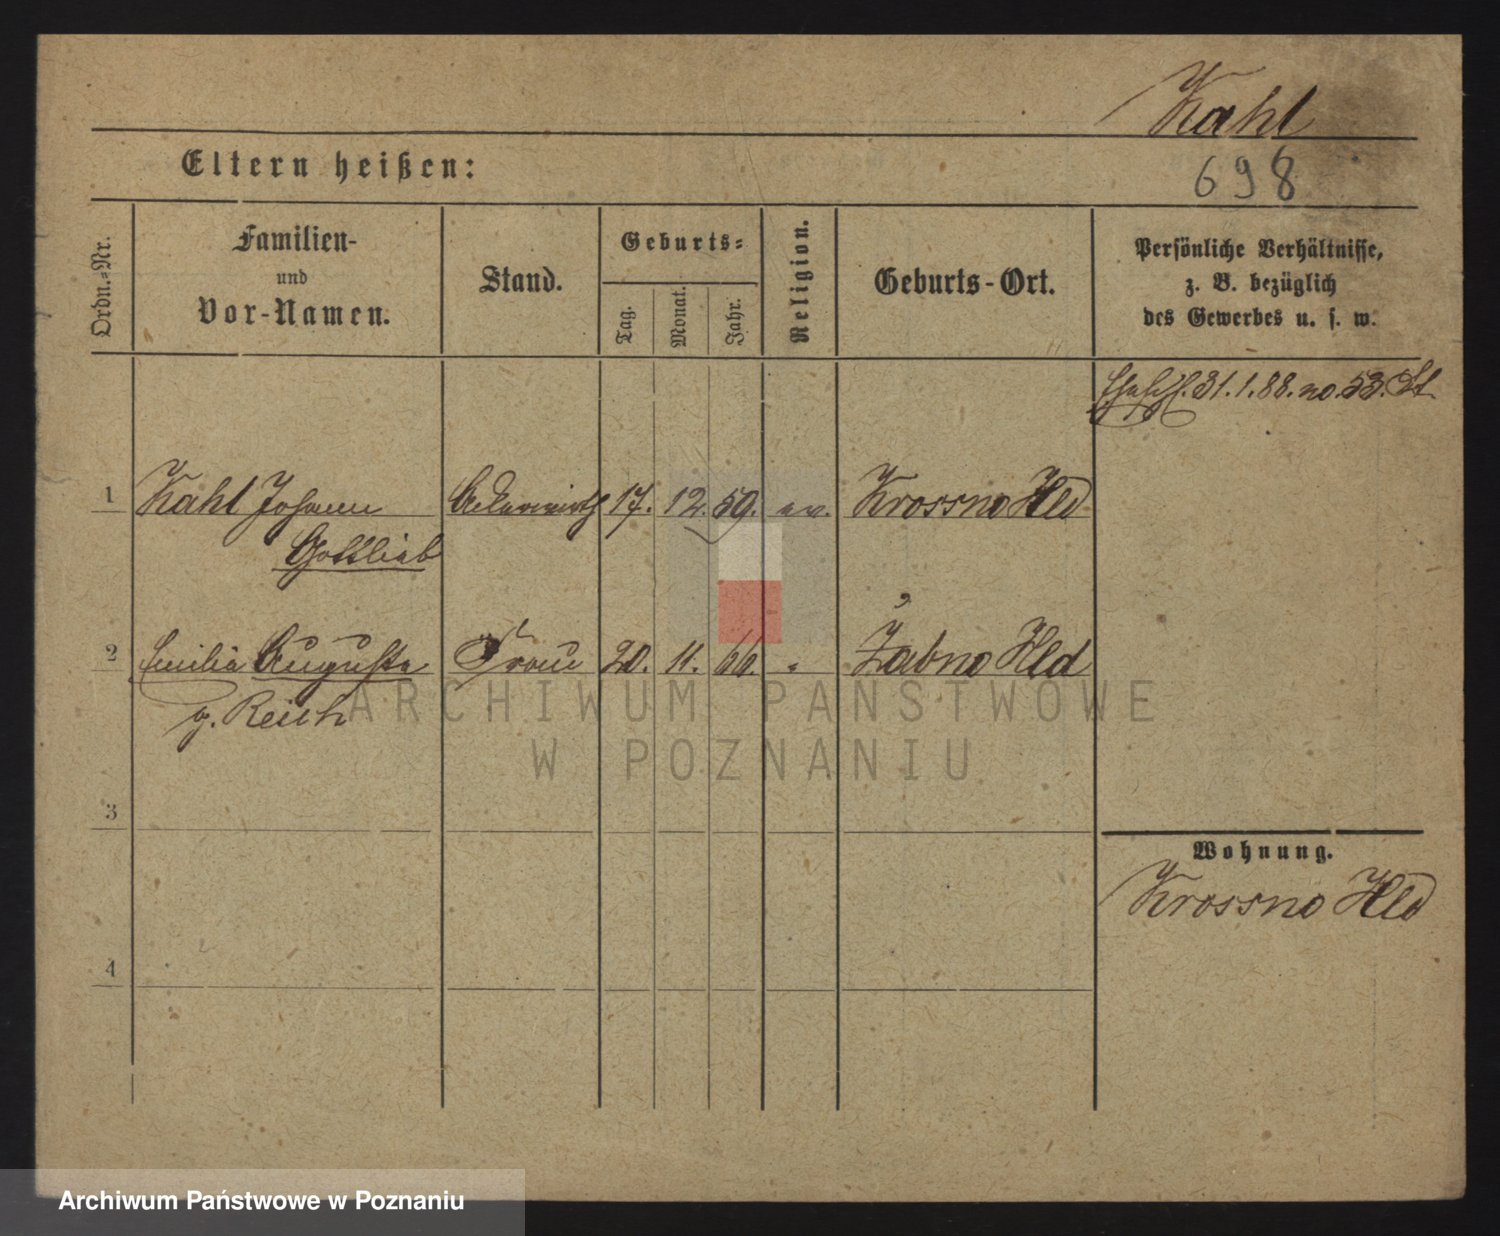 Kahl
Eltern heißen:
698
Ordn.-Nr.
Familien-
und
Vor-Namen.
Stand.
Geburts-
Tag.
Monat.
Jahr.
Religion.
Geburts-Ort.
Persönliche Verhältnisse,
z. B. bezüglich
des Gewerbes u. s. w.
31.1.88. no. 53. St
1 Kahl Johann Ackerwirth 17. 12. 59. ev. Krossno Hld
Gottlieb
2 Emilie Auguste Frau 20. 11. 66. " Żabno Hld
g. Reich
ARCHIWUM PAŃSTWOWE
W POZNANIU
3
Wohnung.
Krossno Hld
4
Archiwum Państwowe w Poznaniu